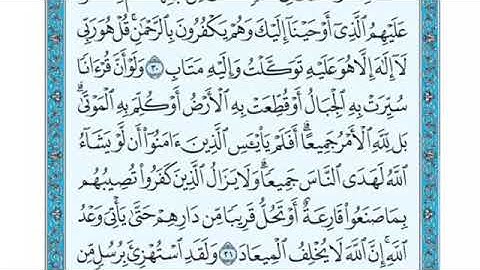 عَلَيْهِمُ ٱلَّذِىٓ أَوْحَيْنَآ إِلَيْكَ وَهُمْ يَكْفُرُونَ بِٱلرَّحْمَٰنِ ۚ قُلْ هُوَ رَبِّى
لَآ إِلَٰهَ إِلَّا هُوَ عَلَيْهِ تَوَكَّلْتُ وَإِلَيْهِ مَتَابِ ٣٠ وَلَوْ أَنَّ قُرْءَانًا
سُيِّرَتْ بِهِ ٱلْجِبَالُ أَوْ قُطِّعَتْ بِهِ ٱلْأَرْضُ أَوْ كُلِّمَ بِهِ ٱلْمَوْتَىٰ ۗ
بَل لِّلَّهِ ٱلْأَمْرُ جَمِيعًا ۗ أَفَلَمْ يَا۟يْـَٔسِ ٱلَّذِينَ ءَامَنُوٓا۟ أَن لَّوْ يَشَآءُ
ٱللَّهُ لَهَدَى ٱلنَّاسَ جَمِيعًا ۗ وَلَا يَزَالُ ٱلَّذِينَ كَفَرُوا۟ تُصِيبُهُم
بِمَا صَنَعُوا۟ قَارِعَةٌ أَوْ تَحُلُّ قَرِيبًا مِّن دَارِهِمْ حَتَّىٰ يَأْتِىَ وَعْدُ
ٱللَّهِ ۚ إِنَّ ٱللَّهَ لَا يُخْلِفُ ٱلْمِيعَادَ ٣١ وَلَقَدِ ٱسْتُهْزِئَ بِرُسُلٍ مِّن